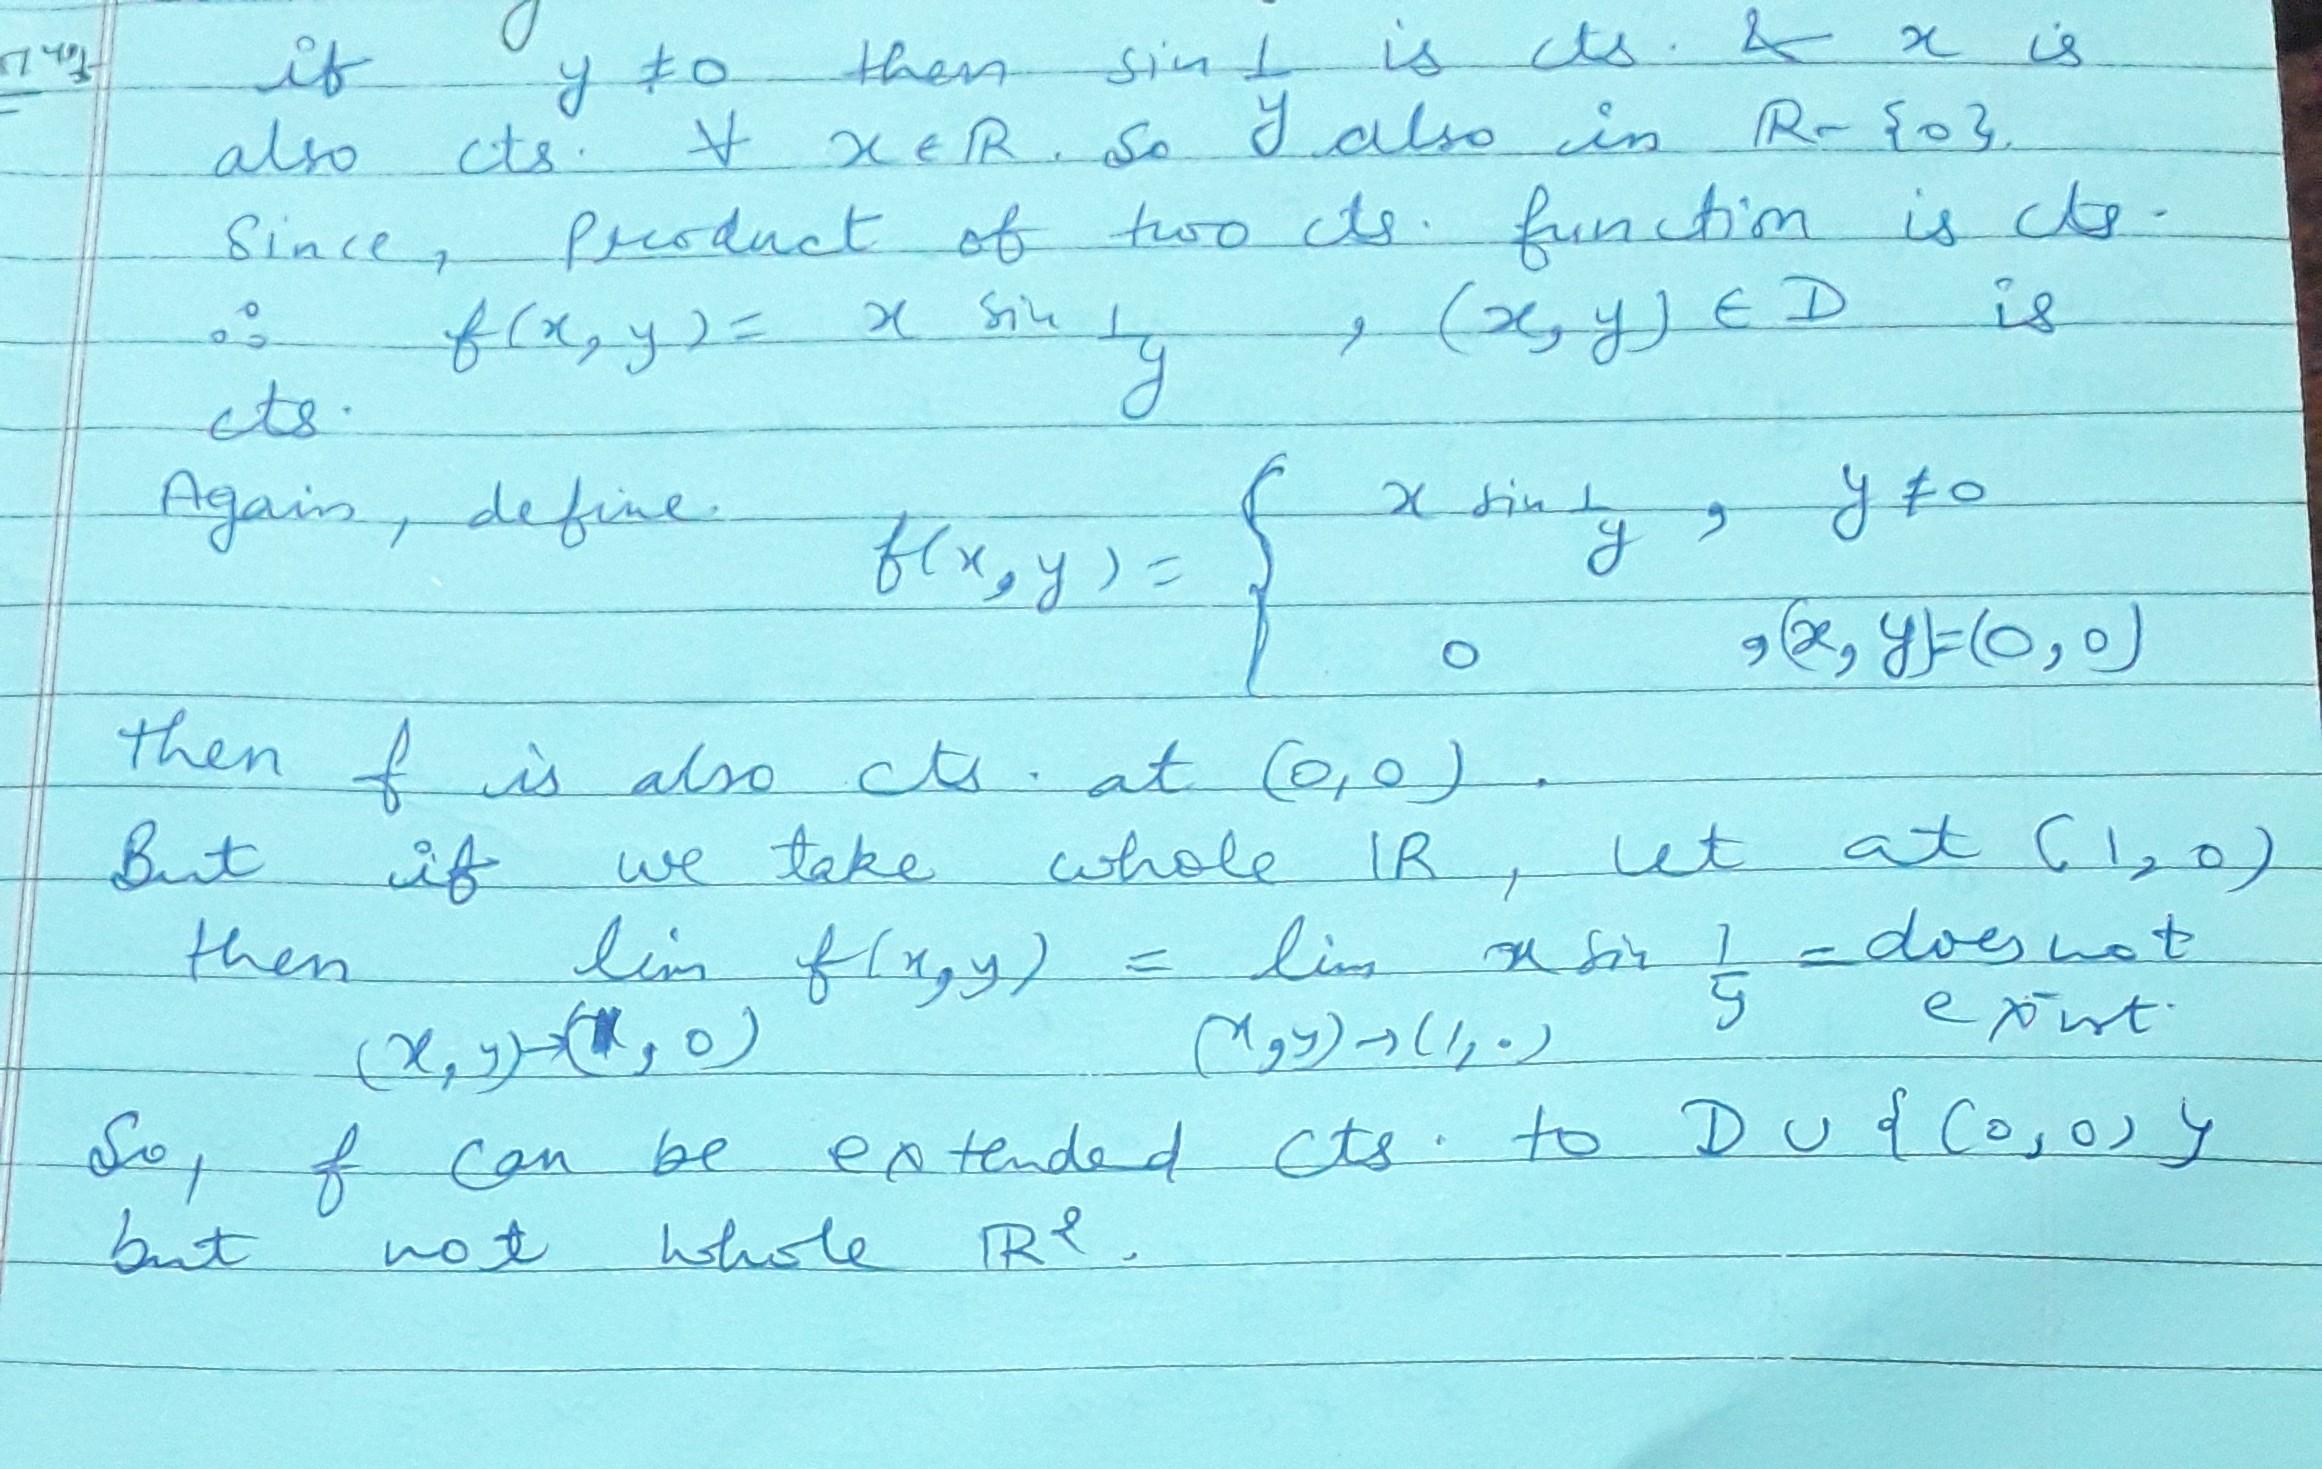 if y ≠ 0 then sin 1/y is cts. & x is
also cts. ∀ x ∈ R. So also in R - {0}.
Since, Product of two cts. function is cts.
∴ f(x, y) = x sin 1/y , (x, y) ∈ D is
cts.
Again, define. f(x, y) = { x sin 1/y , y ≠ 0
0 , (x, y) = (0, 0)
then f is also cts. at (0, 0).
But if we take whole IR, let at (1, 0)
then lim f(x, y) = lim x sin 1/y = does not exist.
(x, y) → ( , 0) (x, y) → (1, 0)
So, f can be extended cts. to D ∪ {(0, 0)}
but not whole IR².